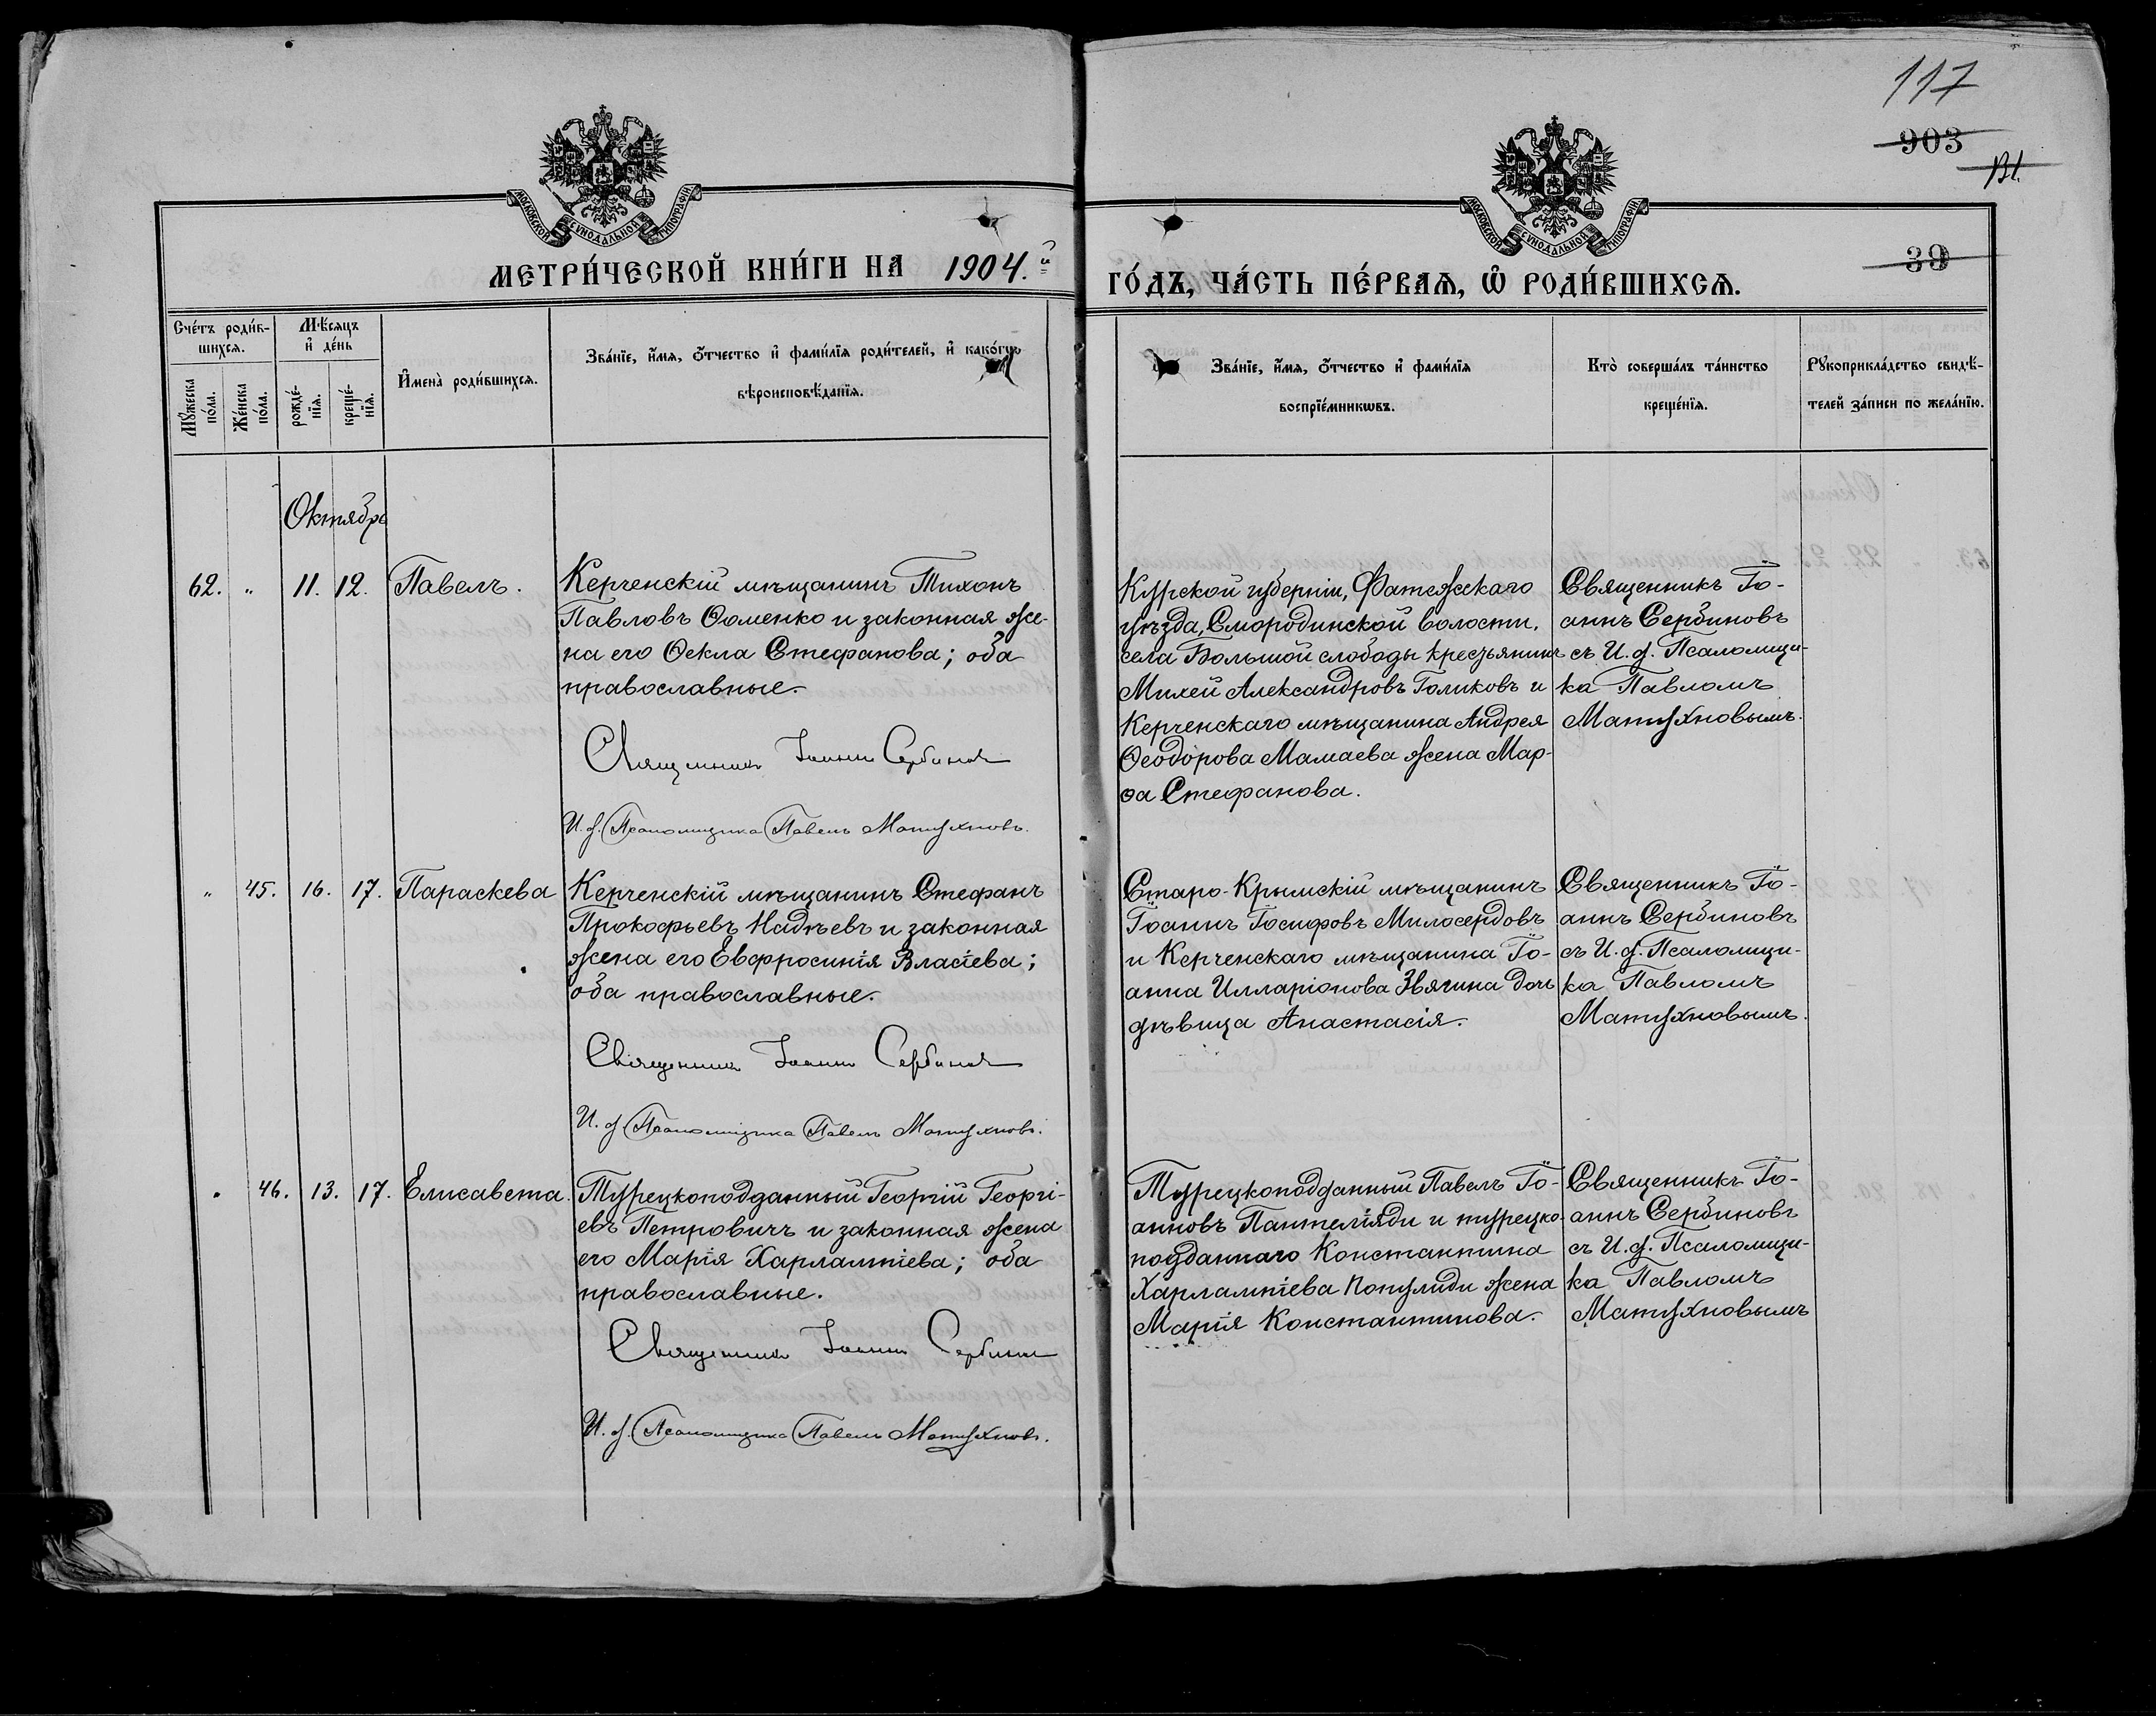 117
903
131.
39
МОСКОВСКОЙ СѴНОДАЛЬНОЙ ТИПОГРАФІИ
МОСКОВСКОЙ СѴНОДАЛЬНОЙ ТИПОГРАФІИ
МЕТРИ́ЧЕСКОЙ КНИ́ГИ НА 1904.й
ГО́ДЪ, ЧА́СТЬ ПЕ́РВАѦ, Ѽ РОДИ́ВШИХСѦ.
Сче́тъ роди́в-
шихсѧ.
Мѣ́сѧцъ
и҆ де́нь
Мꙋ́жеска
по́ла.
Же́нска
по́ла.
рожде́-
нїѧ.
креще́-
нїѧ.
И҆мена̀ роди́вшихсѧ.
Зва́нїе, и҆́мѧ, ѻ҆́тчество и҆ фамі́лїѧ роди́телей, и҆ како́гѡ
вѣроисповѣ́данїѧ.
Зва́нїе, и҆́мѧ, ѻ҆́тчество и҆ фамі́лїѧ
воспрїе́мникѡвъ.
Кто̀ соверша́лъ та́инство
креще́нїѧ.
Рꙋкоприкла́дство свидѣ́-
телей за́писи по жела́нїю.
Октябрь
62. " 11. 12. Павелъ.
Керченскій мѣщанинъ Тихонъ
Павловъ Ѳоменко и законная же-
на его Ѳекла Стефанова; оба
православные.
Священникъ Іоаннъ Сербиновъ
И. д. Псаломщика Павелъ Матухновъ.
Курской губерніи, Фатежскаго
уѣзда, Смородинской волости,
села Большой слободы крестьянинъ
Михей Александровъ Голиковъ и
Керченскаго мѣщанина Андрея
Ѳеодорова Мамаева жена Мар-
ѳа Стефанова.
Священникъ Іо-
аннъ Сербиновъ
съ И. д. Псаломщи-
ка Павломъ
Матухновымъ.
" 45. 16. 17. Параскева
Керченскій мѣщанинъ Стефанъ
Прокофьевъ Надѣевъ и законная
жена его Евфросинія Власіева;
оба православные.
Священникъ Іоаннъ Сербиновъ
И. д. Псаломщика Павелъ Матухновъ.
Старо-Крымскій мѣщанинъ
Іоаннъ Іосифовъ Милосердовъ
и Керченскаго мѣщанина Іо-
анна Илларіонова Звягина дочь
дѣвица Анастасія.
Священникъ Іо-
аннъ Сербиновъ
съ И. д. Псаломщи-
ка Павломъ
Матухновымъ.
" 46. 13. 17. Елисавета.
Турецкоподданный Георгій Георгі-
евъ Петровичъ и законная жена
его Марія Харлампіева; оба
православные.
Священникъ Іоаннъ Сербиновъ
И. д. Псаломщика Павелъ Матухновъ.
Турецкоподданный Павелъ Іо-
анновъ Пантеліяди и турецко-
подданнаго Константина
Харлампіева Популиди жена
Марія Константинова.
Священникъ Іо-
аннъ Сербиновъ
съ И. д. Псаломщи-
ка Павломъ
Матухновымъ